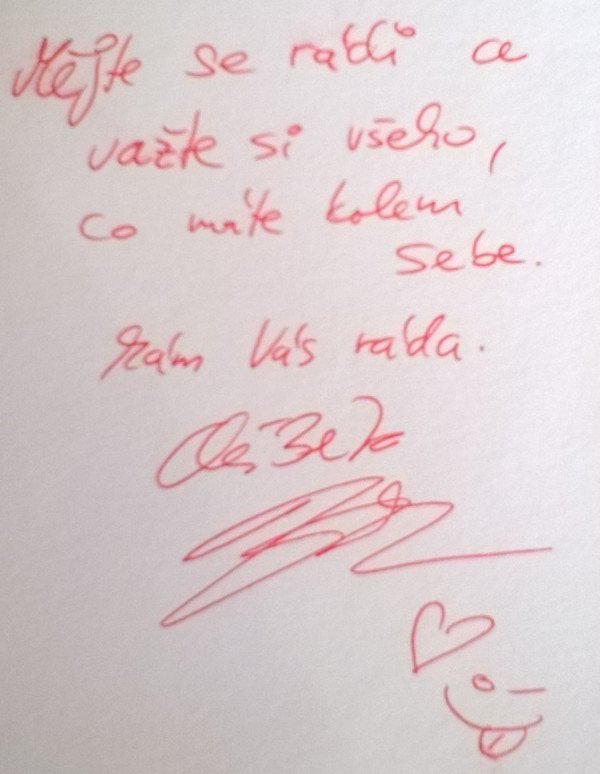 Mějte se rádi a
važte si všeho,
co máte kolem
sebe.
Mám Vás ráda.